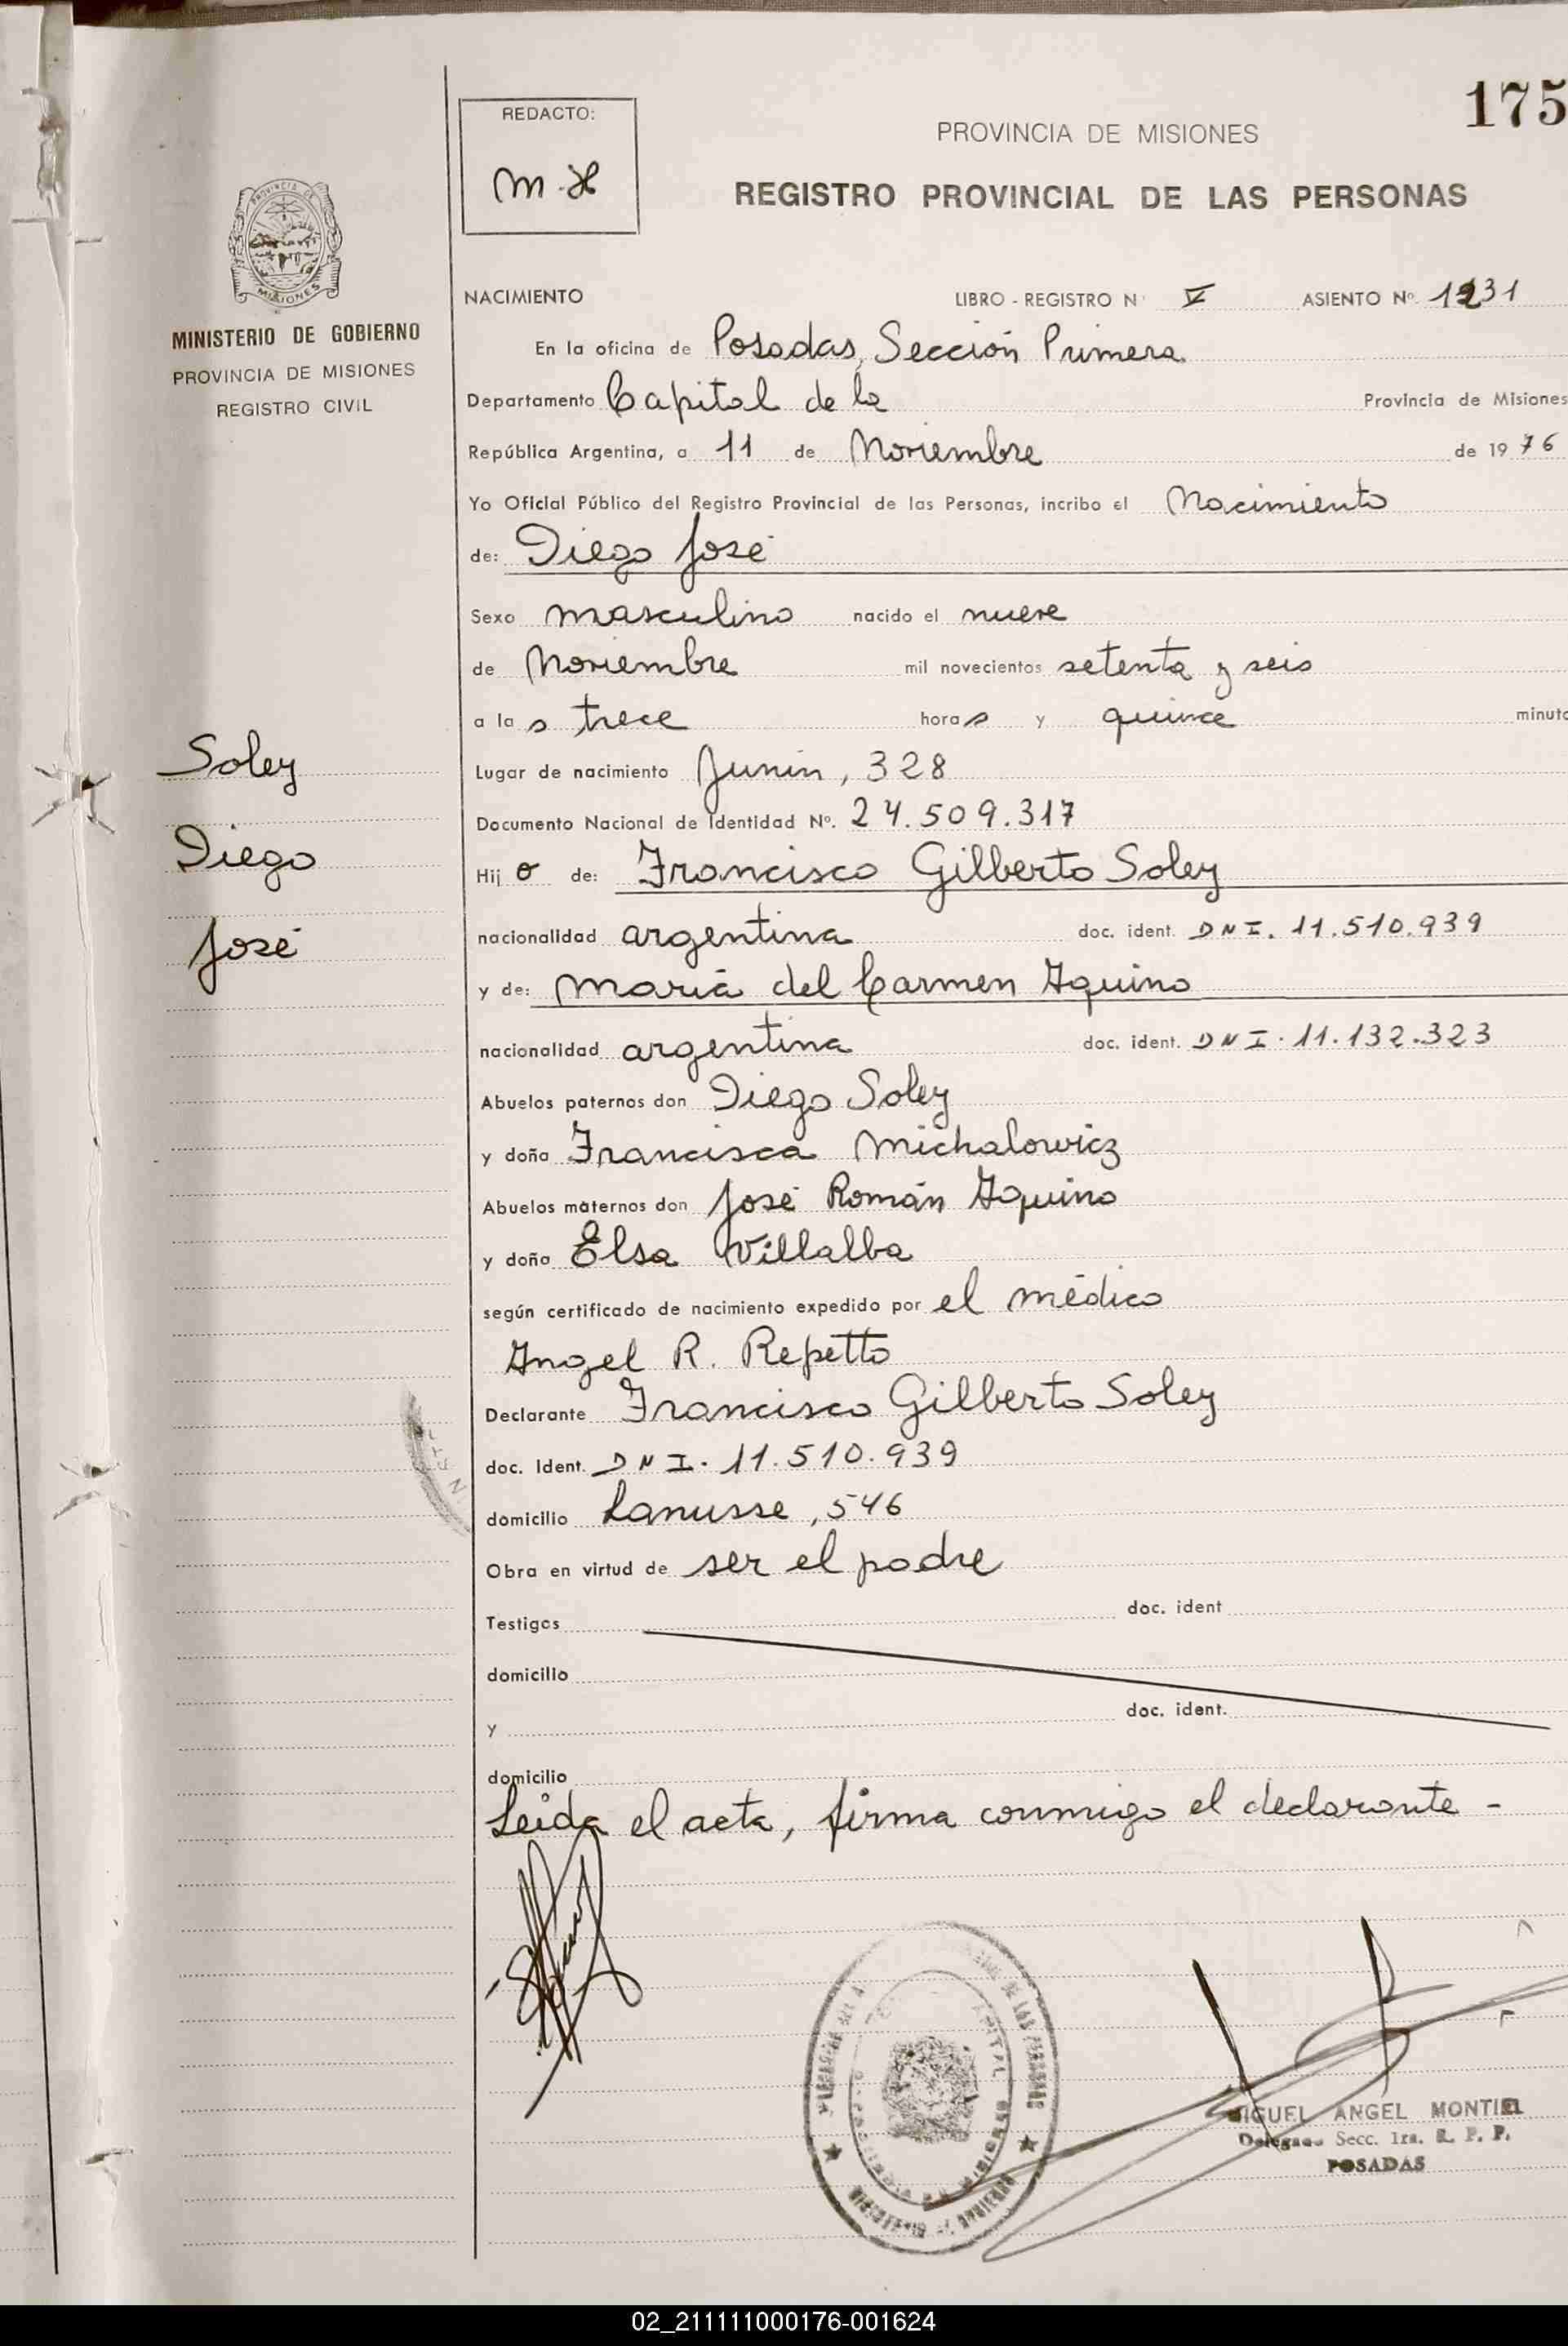 175
REDACTO:
M.H
PROVINCIA DE MISIONES
REGISTRO PROVINCIAL DE LAS PERSONAS
PROVINCIA DE
MISIONES
MINISTERIO DE GOBIERNO
PROVINCIA DE MISIONES
REGISTRO CIVIL
NACIMIENTO LIBRO - REGISTRO N° V ASIENTO Nº. 1231
En la oficina de Posadas, Sección Primera
Departamento Capital de la Provincia de Misiones
República Argentina, a 11 de Noviembre de 1976
Yo Oficial Público del Registro Provincial de las Personas, incribo el Nacimiento
de: Diego José
Sexo masculino nacido el nueve
de Noviembre mil novecientos setenta y seis
a las trece horas y quince minuto
Lugar de nacimiento Junín, 328
Documento Nacional de Identidad Nº. 24.509.317
Hijo de: Francisco Gilberto Soley
nacionalidad argentina doc. ident. DNI. 11.510.939
y de: María del Carmen Aquino
nacionalidad argentina doc. ident. DNI. 11.132.323
Abuelos paternos don Diego Soley
y doña Francisca Michalowicz
Abuelos maternos don José Román Aquino
y doña Elsa Villalba
según certificado de nacimiento expedido por el médico
Angel R. Repetto
Declarante Francisco Gilberto Soley
doc. ident. DNI. 11.510.939
domicilio Lanusse, 546
Obra en virtud de ser el padre
Testigos doc. ident
domicilio
y doc. ident.
domicilio
Leida el acta, firma conmigo el declarante -
Soley
Diego
José
MIGUEL ANGEL MONTIEL
Delegado Secc. 1ra. R. P. P.
POSADAS
02_211111000176-001624